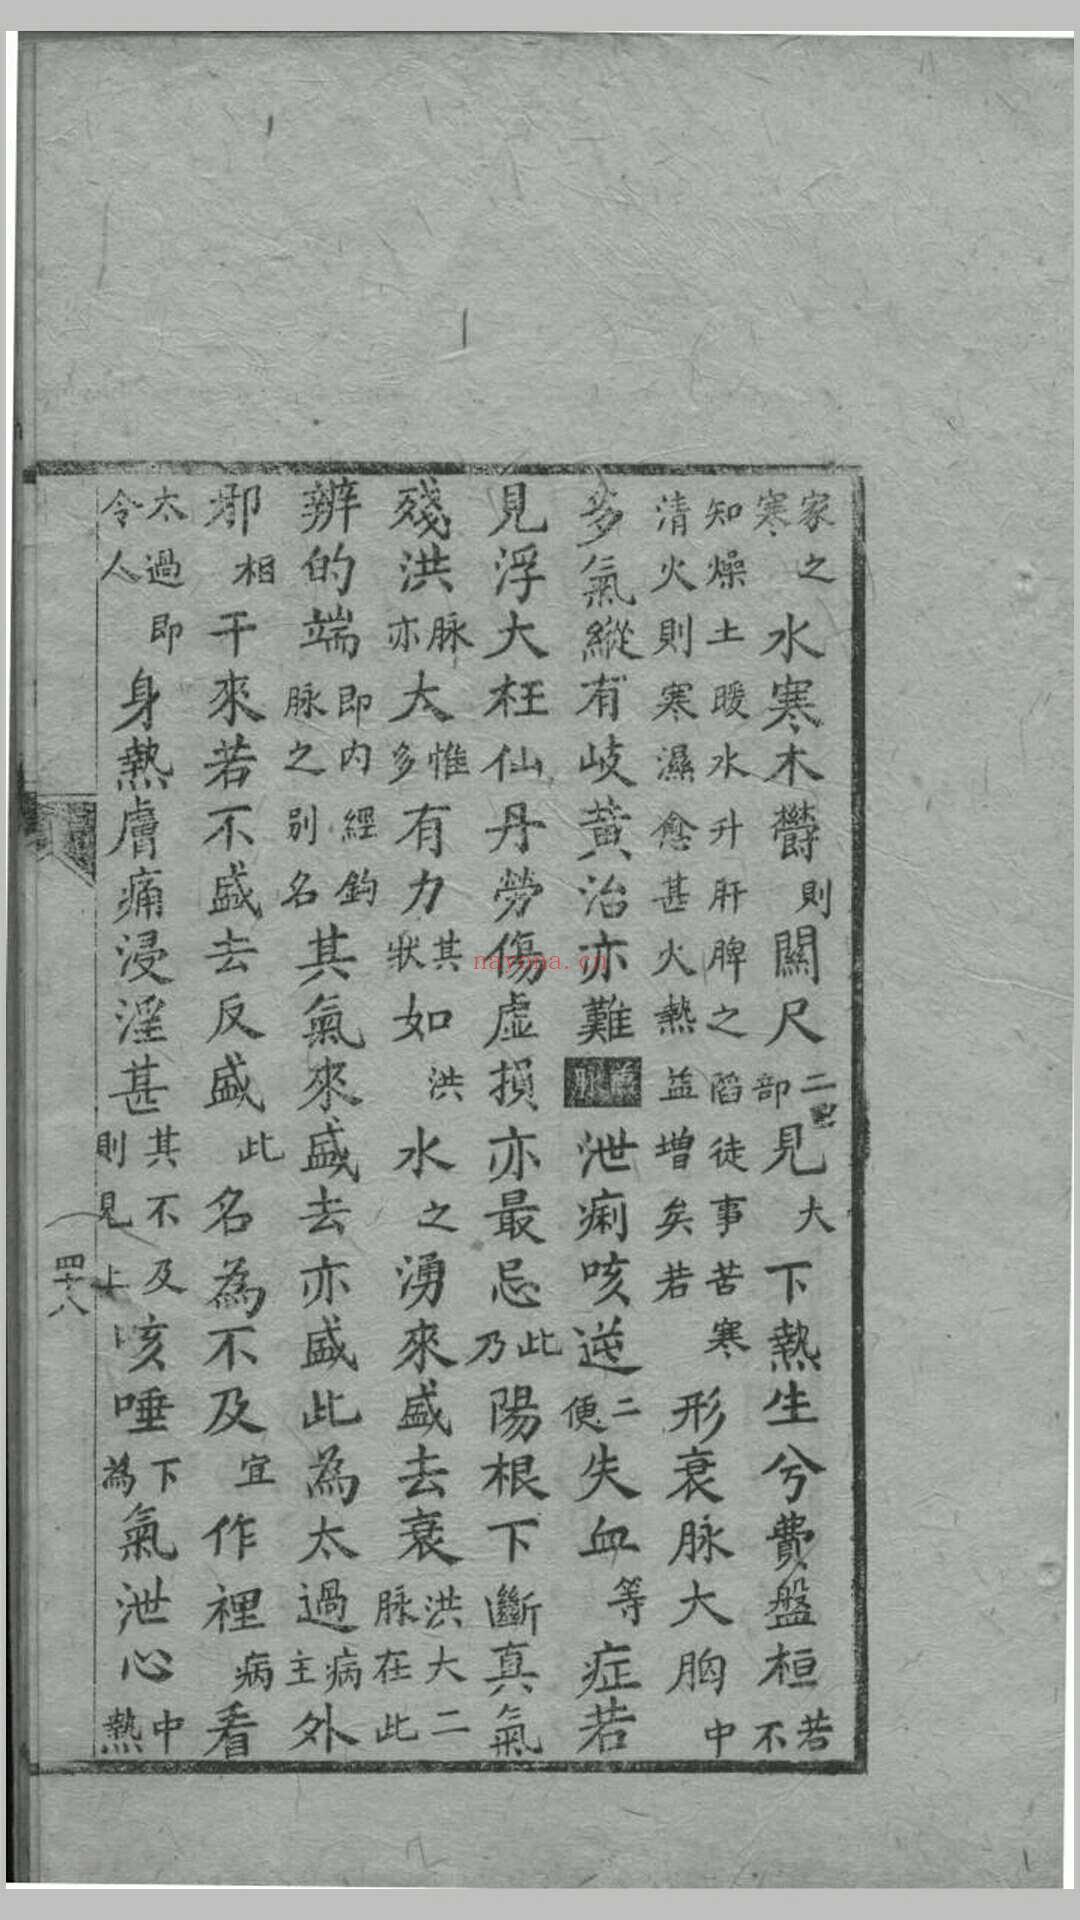 家之寒水寒木欝則關尺二部見大下熱生兮費盤桓若不
知燥土暖水升肝脾之陷徒事苦寒清火則寒濕愈甚火熱益增矣若形衰脉大胸中
多氣縱有岐黄治亦難泄痢咳逆二便失血等症若
見浮大枉仙丹勞傷虛損亦最忌此乃陽根下斷真氣
殘洪脉亦大惟多有力其狀如洪水之湧來盛去衰洪大二脉在此
辨的端即内經鈎脉之別名其氣來盛去亦盛此為太過病主外
邪相干來若不盛去反盛此名為不及宜作裡病看
太過即令人身熱膚痛浸淫甚其不及則見上咳唾下為氣泄心中熱
四十八
nayona.cn